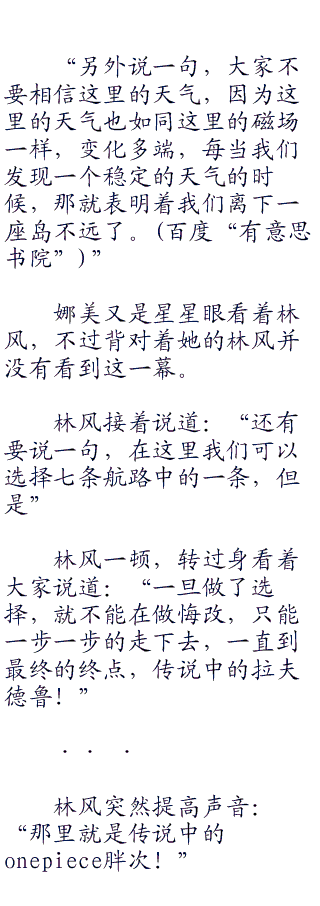 “另外说一句，大家不
要相信这里的天气，因为这
里的天气也如同这里的磁场
一样，变化多端，每当我们
发现一个稳定的天气的时
候，那就表明着我们离下一
座岛不远了。(百度“有意思
书院”)”
娜美又是星星眼看着林
风，不过背对着她的林风并
没有看到这一幕。
林风接着说道：“还有
要说一句，在这里我们可以
选择七条航路中的一条，但
是”
林风一顿，转过身看着
大家说道：“一旦做了选
择，就不能在做悔改，只能
一步一步的走下去，一直到
最终的终点，传说中的拉夫
德鲁！”
．．．
林风突然提高声音：
“那里就是传说中的
onepiece胖次！”